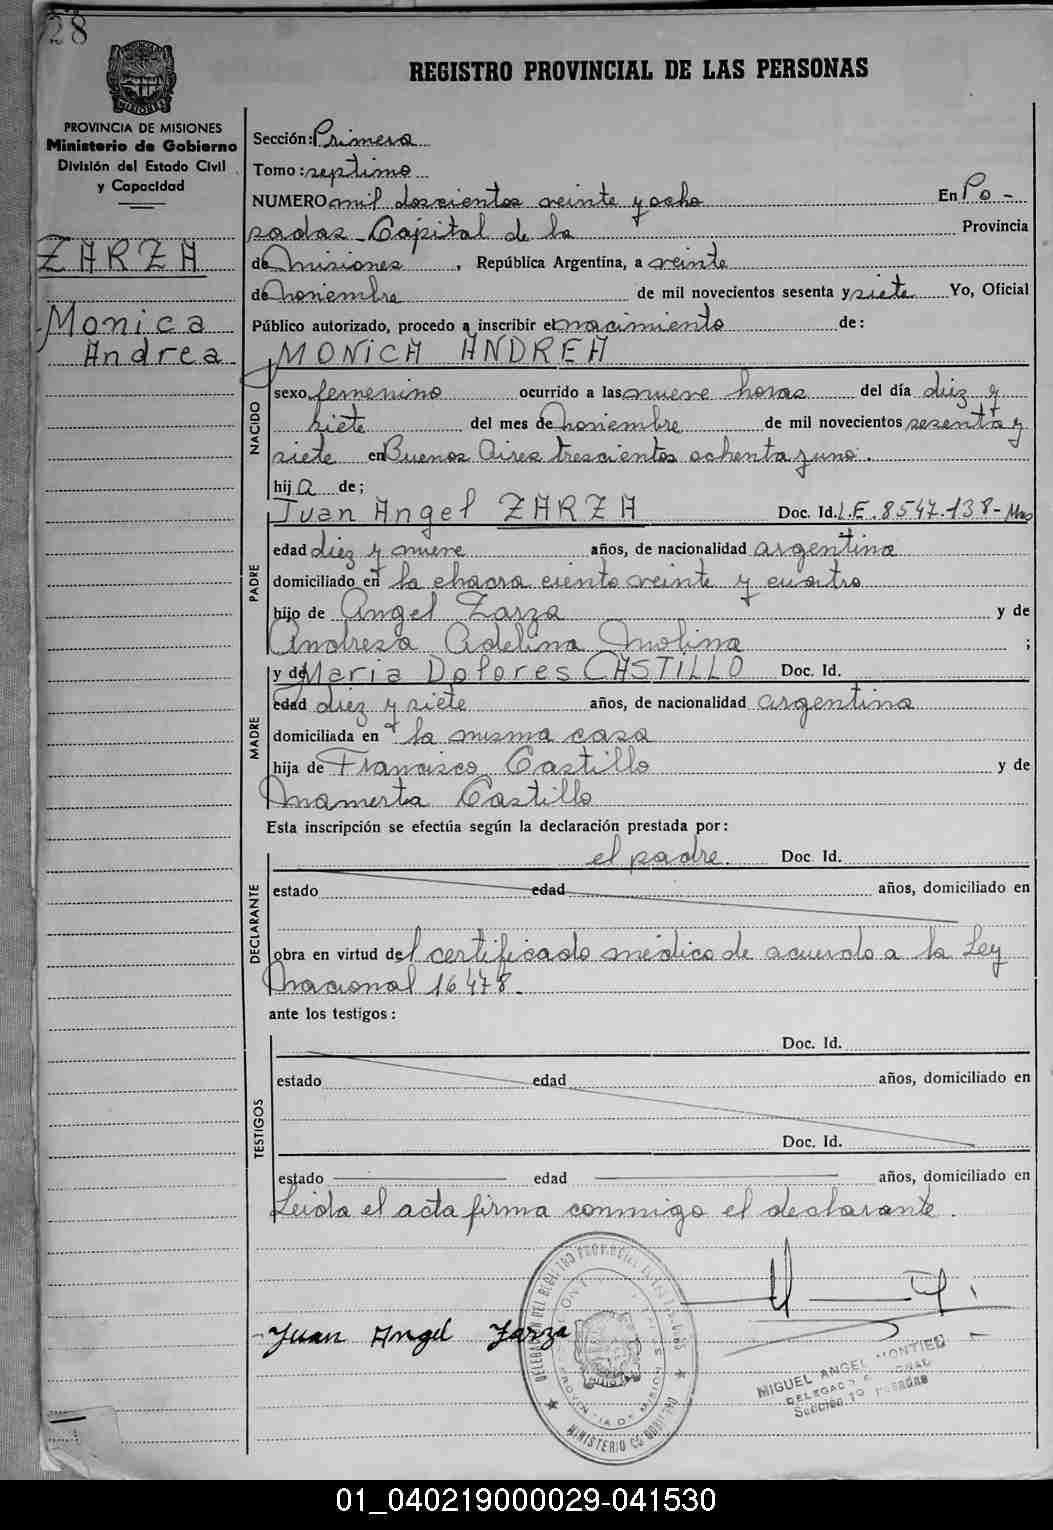 28
REGISTRO PROVINCIAL DE LAS PERSONAS
PROVINCIA DE MISIONES
Ministerio de Gobierno
División del Estado Civil
y Capacidad
ZARZA
Monica
Andrea
Sección: Primera
Tomo: septimo
NUMERO mil doscientos veinte y ocho En Po-
sadas - Capital de la Provincia
de Misiones, República Argentina, a veinte
de noviembre de mil novecientos sesenta y siete Yo, Oficial
Público autorizado, procedo a inscribir el nacimiento de:
MONICA ANDREA
NACIDO
sexo femenino ocurrido a las nueve horas del día diez y
siete del mes de noviembre de mil novecientos sesenta y
siete en Buenos Aires trescientos ochenta y uno.
hija de;
Juan Angel ZARZA Doc. Id. L.E. 8547.138-
PADRE
edad diez y nueve años, de nacionalidad argentina
domiciliado en la chacra ciento veinte y cuatro
hijo de Angel Zarza y de
Andresa Adelina Molina ;
y de Maria Dolores CASTILLO Doc. Id.
MADRE
edad diez y siete años, de nacionalidad argentina
domiciliada en la misma casa
hija de Francisco Castillo y de
Mamerta Castillo
Esta inscripción se efectúa según la declaración prestada por:
el padre. Doc. Id.
DECLARANTE
estado edad años, domiciliado en
obra en virtud del certificado médico de acuerdo a la Ley
Nacional 16478.-
ante los testigos:
Doc. Id.
TESTIGOS
estado edad años, domiciliado en
Doc. Id.
estado edad años, domiciliado en
Leida el acta firma conmigo el declarante.
Juan Angel Zarza
MINISTERIO DE GOBIERNO
PROVINCIA DE MISIONES
MIGUEL ANGEL MONTIEL
01_040219000029-041530